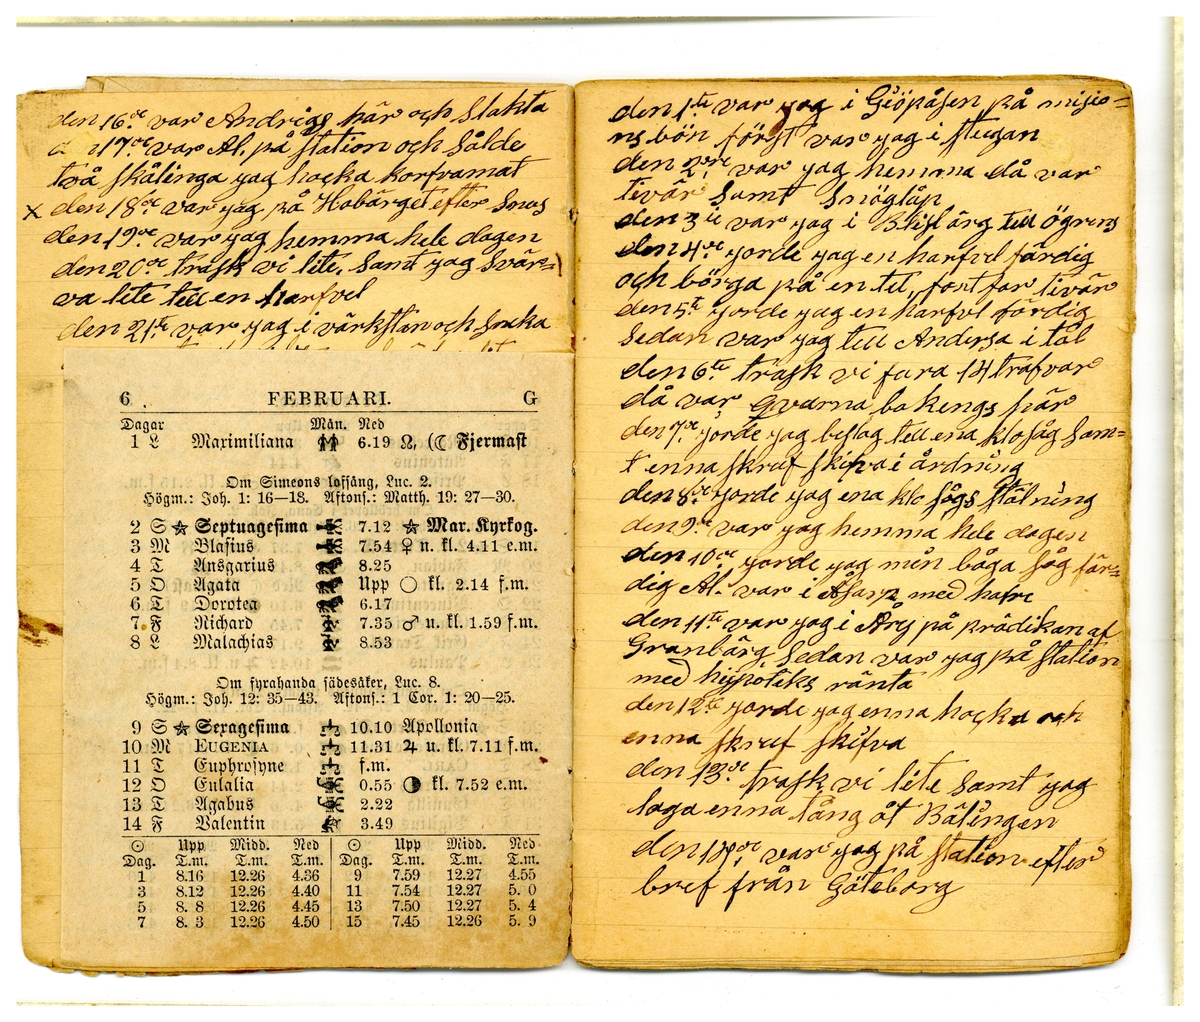 den 16de var Andrias här och Slakta
d 17de var Al, på Station och Sålde
två skålinga yag hacka korfvamat
x den 18de var yag på Habärget efter Snus
den 19de var yag hemma hele dagen
den 20de träsk vi lite, Samt yag Svär=
va lite till en harfvel
den 21te var yag i värkstan och Snska
6 FEBRUARI. G
Dagar Mån. Ned
1 L Maximiliana 6.19 ☊, (☾ Fjermast
Om Simeons lofsång, Luc. 2.
Högm.: Joh. 1: 16—18. Aftons.: Matth. 19: 27—30.
2 S ☆ Septuagesima 7.12 ☆ Mar. Kyrkog.
3 M Blasius 7.54 ♀ n. kl. 4.11 e.m.
4 T Ansgarius 8.25
5 O Agata Upp ○ kl. 2.14 f.m.
6 T Dorotea 6.17
7 F Richard 7.35 ♂ n. kl. 1.59 f.m.
8 L Malachias 8.53
Om fyrahanda sädesåker, Luc. 8.
Högm.: Joh. 12: 35—43. Aftons.: 1 Cor. 1: 20—25.
9 S ☆ Sexagesima 10.10 Apollonia
10 M EUGENIA 11.31 ♃ n. kl. 7.11 f.m.
11 T Euphrosyne f.m.
12 O Eulalia 0.55 ◑ kl. 7.52 e.m.
13 T Agabus 2.22
14 F Valentin 3.49
☉ Upp Midd. Ned ☉ Upp Midd. Ned
Dag. T.m. T.m. T.m. Dag. T.m. T.m. T.m.
1 8.16 12.26 4.36 9 7.59 12.27 4.55
3 8.12 12.26 4.40 11 7.54 12.27 5. 0
5 8. 8 12.26 4.45 13 7.50 12.27 5. 4
7 8. 3 12.26 4.50 15 7.45 12.26 5. 9
den 1te var yag i Giöpåsen på misio=
ns bön först var yag i stugan
den 2dre var yag hemma då var
tivär Samt Snöglåp
den 3ie var yag i till Ögrens
den 4de yorde yag en harfvel färdig
och börga på en tel, fort far tivär
den 5te yorde yag en harfvl färdig
Sedan var yag till Andersa i tål
den 6te träsk vi fura 14 trafvar
då var Gvarna bakengs här
den 7de yorde yag beslag till ena klosåg Sam=
t enna skruf skifva i årdning
den 8de yorde yag ena klo sågs stålning
den 9de var yag hemma hele dagen
den 10de yorde yag min båga såg fär=
dig Al. var i Åsarp med hafre
den 11te var yag i Åry på prädikan af
Granbärg, Sedan var yag på Station
med hypotiks ränta
den 12te yorde yag enna hacka och
enna skruf skifva
den 13de trask vi lite Samt yag
laga enna tång åt Bälingen
den 14de var yag på station efter
bref från Göteborg